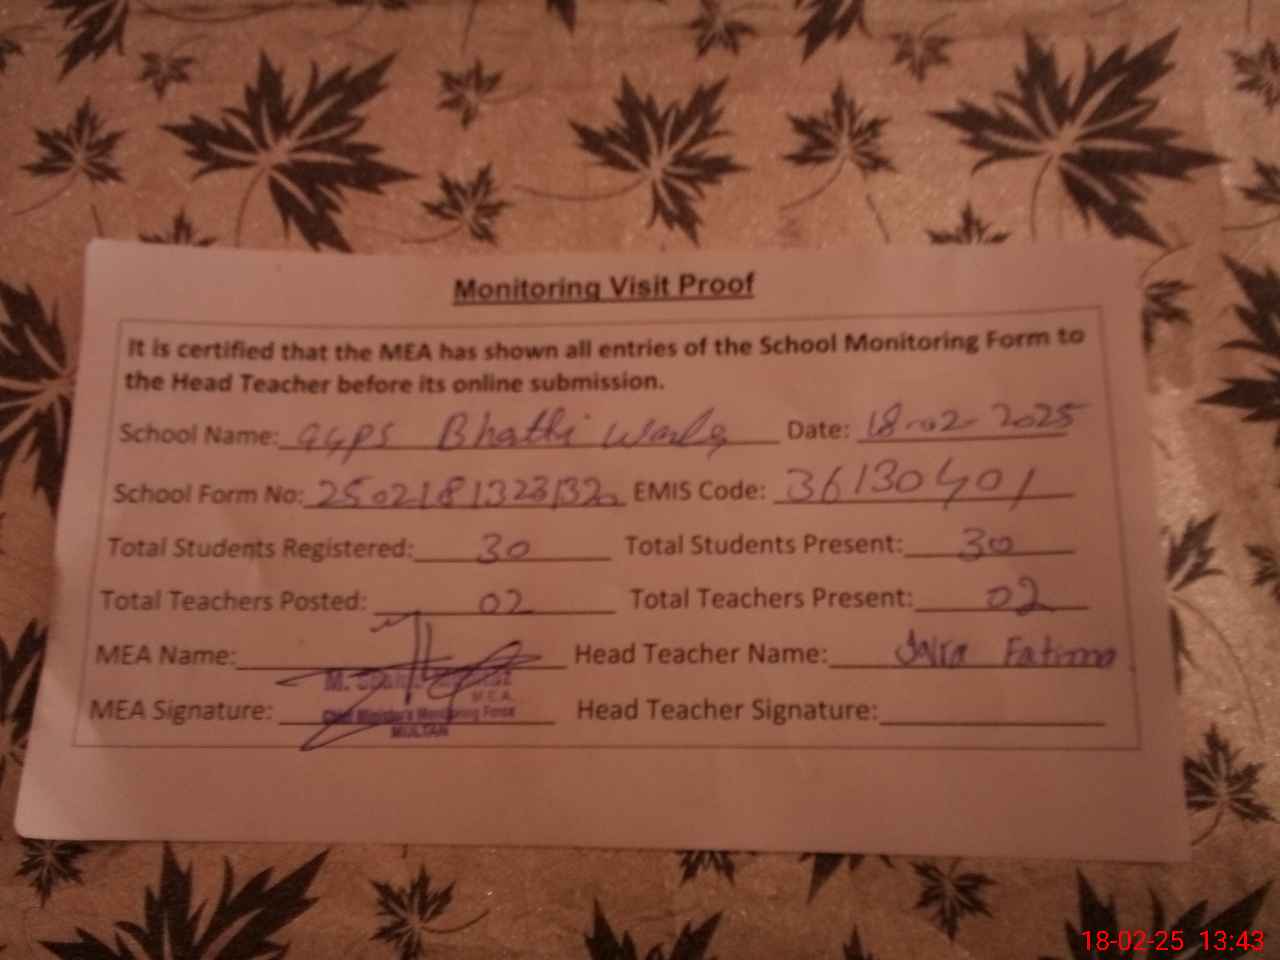 Monitoring Visit Proof
It is certified that the MEA has shown all entries of the School Monitoring Form to
the Head Teacher before its online submission.
School Name: GGPS Bhathi Wala Date: 18-02-2025
School Form No: EMIS Code: 36130401
Total Students Registered: 30 Total Students Present: 30
Total Teachers Posted: 02 Total Teachers Present: 02
MEA Name: Head Teacher Name: Fatima
M.
M.E.A.
MEA Signature: Head Teacher Signature:
Chief Minister's Monitoring Force
MULTAN
18-02-25 13:43